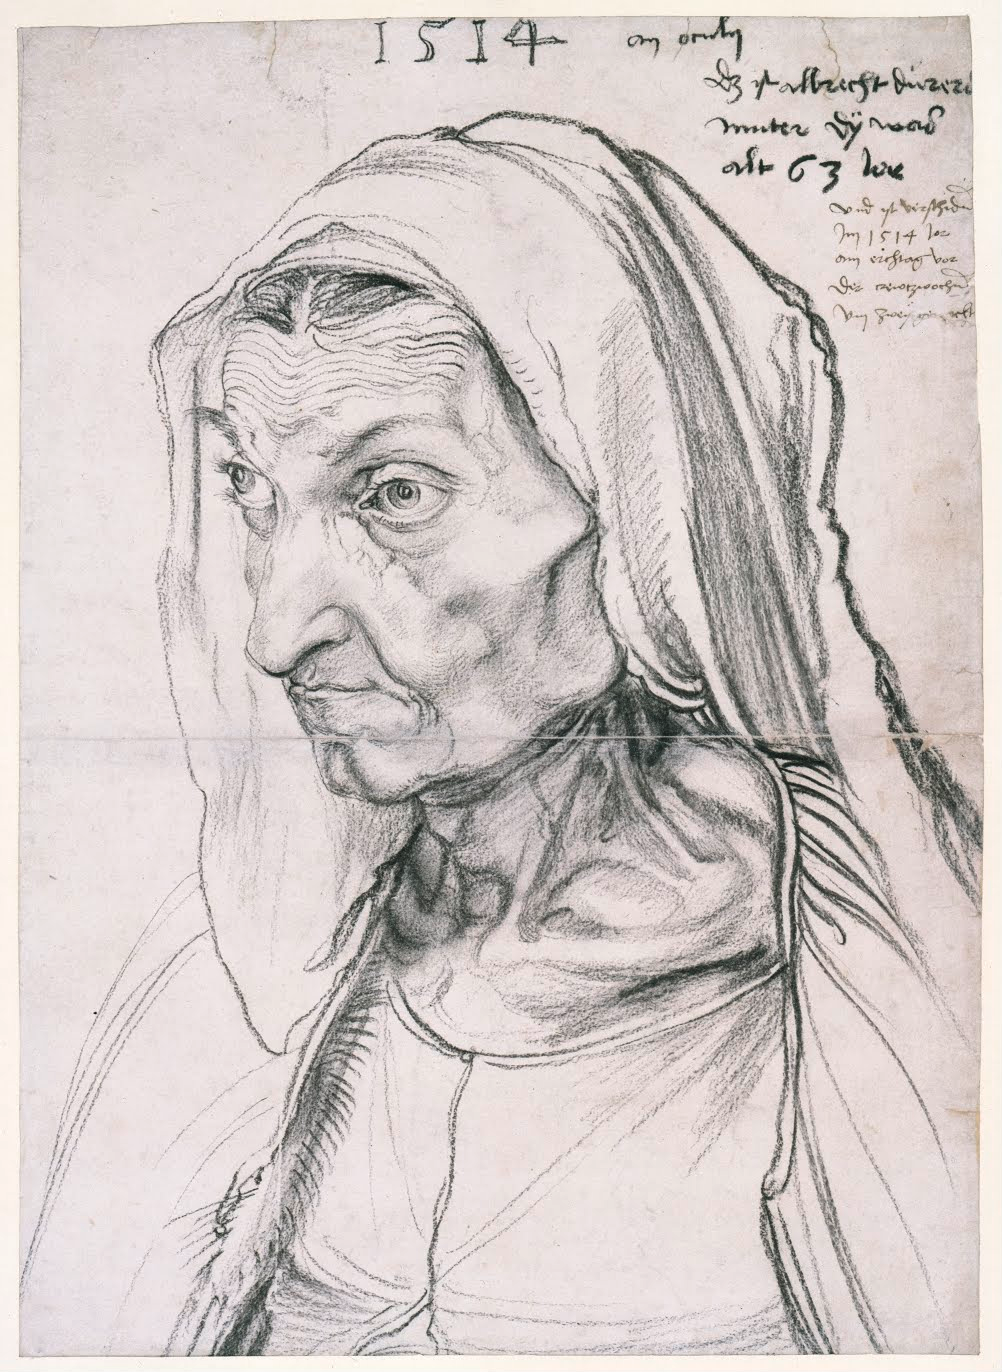 1514 an oculy
dz ist albrecht dürers
muter dy was
alt 63 Jor
und ist verschiden
Im 1514 Jor
am erchtag vor
der crewtzwochn
um zwey gen nacht